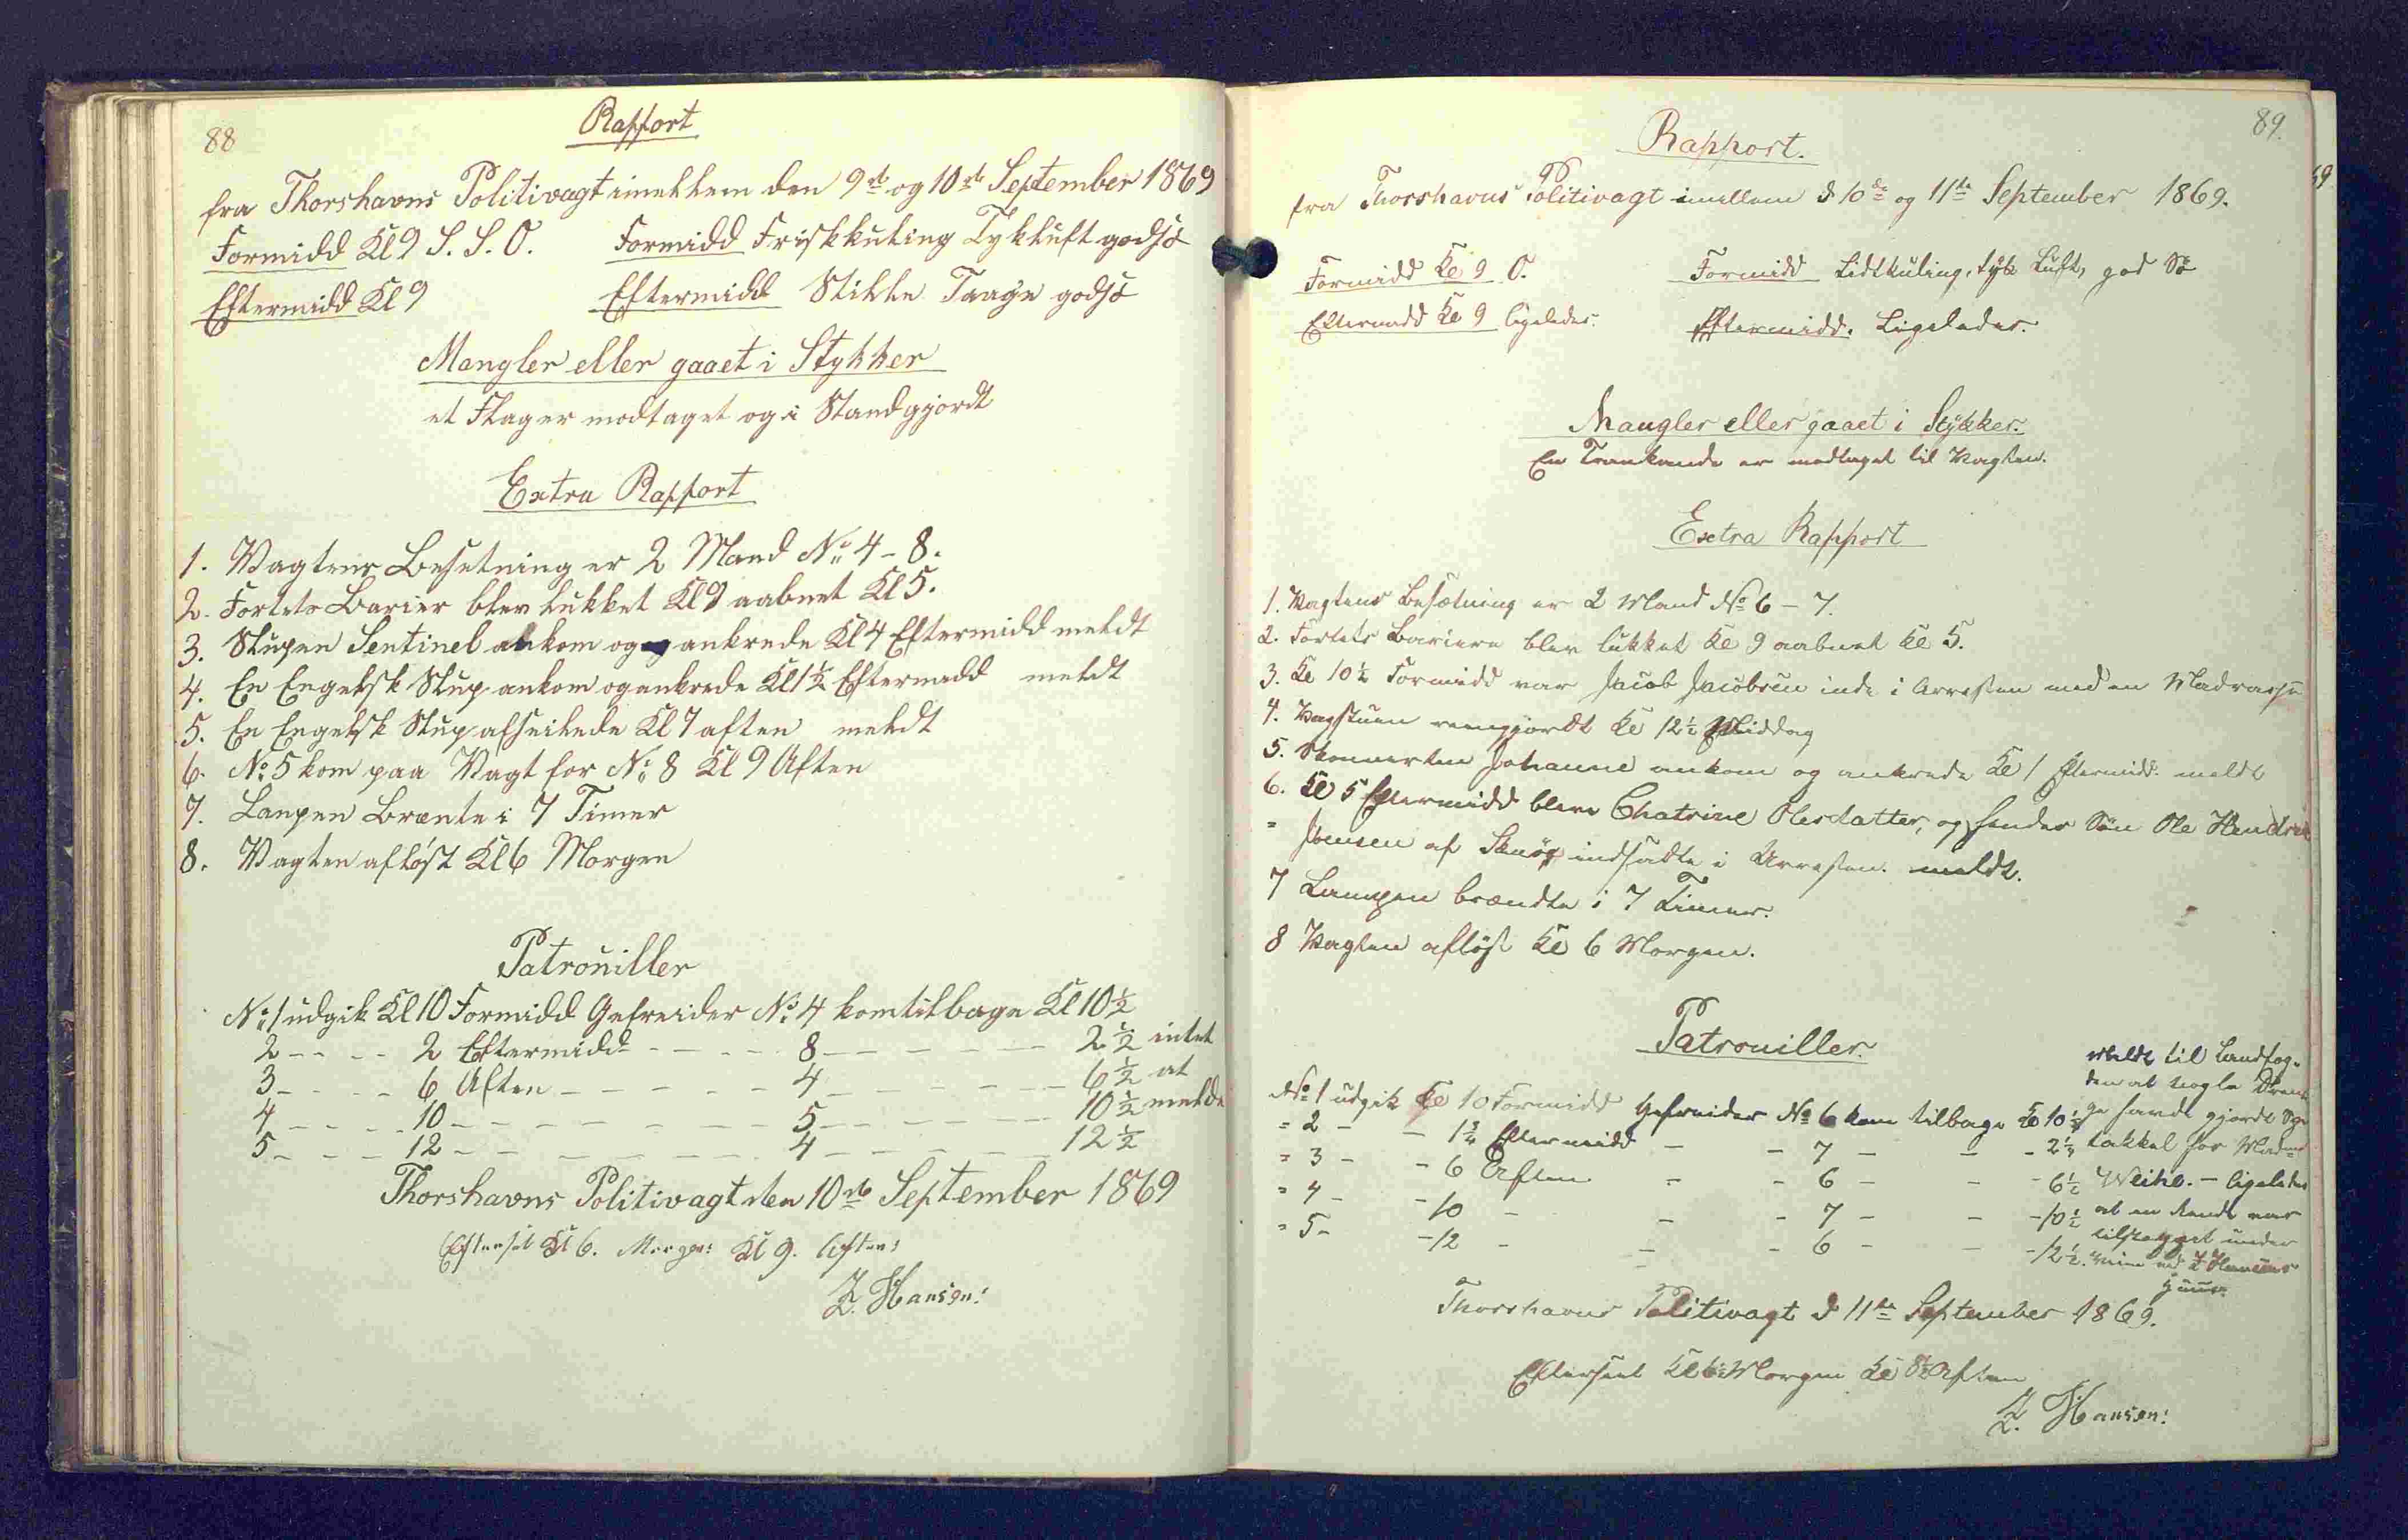 88
Rapport
fra Thorshavns Politivagt imellem den 9de og 10de September 1869
Formidd Kl 9 S. S. O. Formidd Friskkuling Tykluft godsö
Eftermidd Kl 9 Eftermidd Stille Taage godsö
Mangler eller gaaet i Stykker
et Flag er modtaget og i Standgjordt
Extra Rapport
1. Vagtens Besetning er 2 Mand No 4 - 8.
2. Fortets Barier blev lukket Kl 9 aabnet Kl 5.
3. Slupen Sentinel ankom og ankrede Kl 4 Eftermidd meldt
4. En Engelsk Slup ankom og ankrede Kl 1½ Eftermidd meldt
5. En Engelsk Slup afseilede Kl 7 aften meldt
6. No 5 kom paa Vagt for No 8 Kl 9 Aften
7. Lampen Brænte i 7 Timer
8. Vagten aflöst Kl 6 Morgen
Patrouiller
No 1 udgik Kl 10 Formidd Gefreider No 4 kom tilbage Kl 10½
2 - - - - 2 Eftermidd - - - - 8 - - - - - 2½ intet
3 - - - - 6 Aften - - - - - 4 - - - - - 6½ at
4 - - - - 10 - - - - - - - 5 - - - - - 10½ melde
5 - - - - 12 - - - - - - - 4 - - - - - 12½
Thorshavns Politivagt den 10de September 1869
Efterset Kl 6. Morgen: Kl 9. Aften:
Z. Hansen:
89.
Rapport.
fra Thorshavns Politivagt imellem d 10de og 11te September 1869.
Formidd Kl 9 O. Formidd Lidtkuling, tyk Luft, god Sö
Eftermidd Kl 9 ligeledes. Eftermidd. Ligeledes.
Mangler eller gaaet i Stykker.
En Trankande er modtaget til Vagten.
Extra Rapport
1. Vagtens Besætning er 2 Mand No 6 - 7.
2. Fortets Bariere blev lukket Kl 9 aabnet Kl 5.
3. Kl 10½ Formidd var Jacob Jacobsen inde i Arresten med en Madrasse
4. Vagstuen reengjordt Kl 12½ Middag
5. Skonnerten Johanne ankom og ankrede Kl 1 Eftermidd. meldt
6. Kl 5 Eftermidd bleve Chatrine Olesdatter, og hendes Sön Ole Hendrik
" Joensen af indsadte i Arresten. meldt.
7 Lampen brændte i 7 Timer.
8 Vagten aflöst Kl 6 Morgen.
Patrouiller.
No 1 udgik Kl 10 Formidd Gefreider No 6 kom tilbage Kl 10½
" 2 - - Eftermidd - - 7 - - - 2½
" 3 - - 6 Aften - - 6 - - - 6½
" 4 - - 10 - - - 7 - - - 10½
" 5 - - 12 - - - 6 - - - 12½.
Meldt til Landfog-
den at nogle Dren-
ge havde gjordt Spe-
takkel for Madme
Weihe. - ligeledes
at en Rende var
tilstoppet under
Hansens
Huus.
Thorshavns Politivagt d 11te September 1869.
Efterseet Kl 6 Morgen Kl 8½ Aften
Z. Hansen: